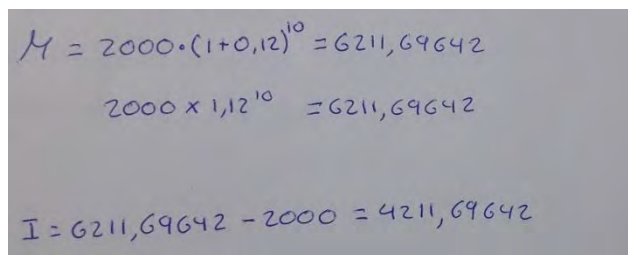 M = 2000·(1+0,12)¹⁰ = 6211,69642
2000 x 1,12¹⁰ = 6211,69642
I = 6211,69642 - 2000 = 4211,69642